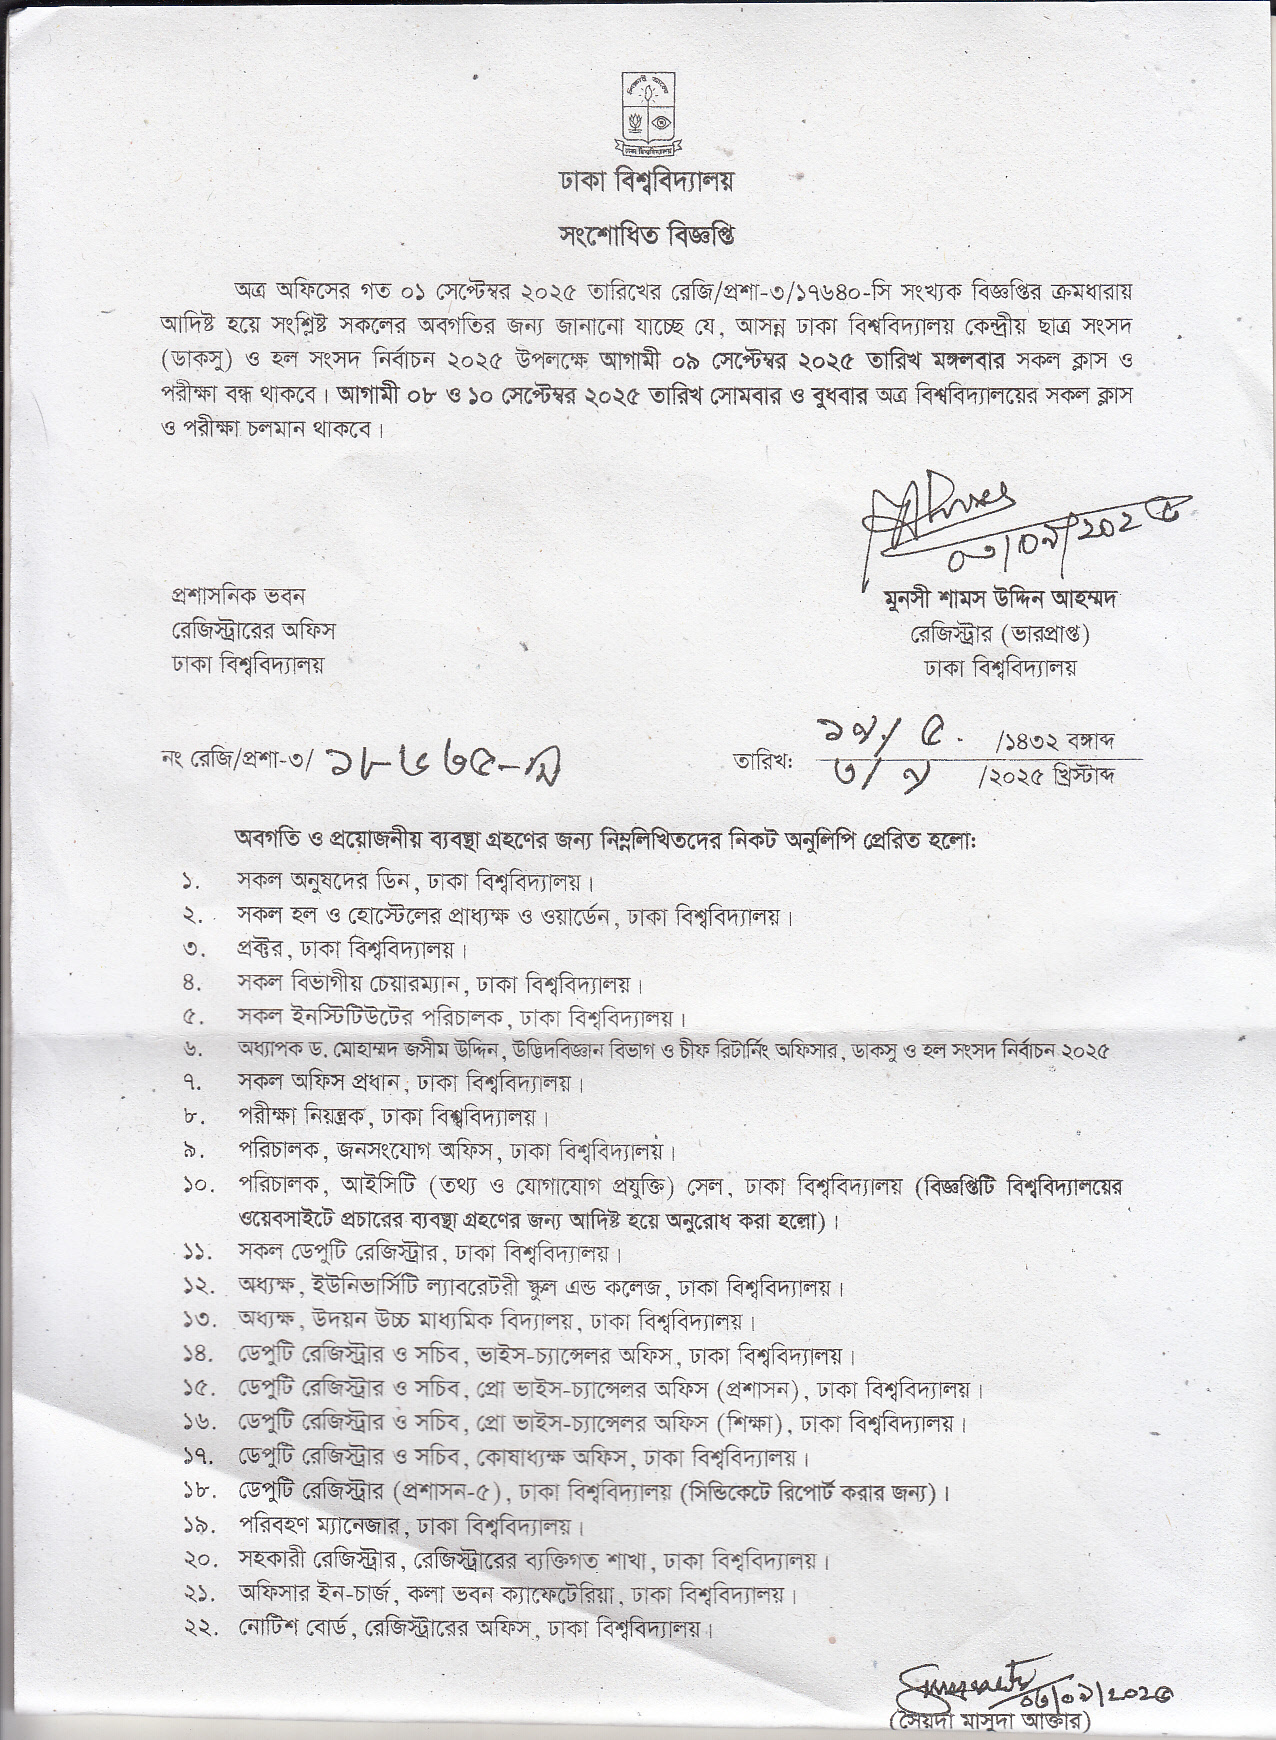 ঢাকা বিশ্ববিদ্যালয়
ঢাকা বিশ্ববিদ্যালয়
সংশোধিত বিজ্ঞপ্তি
অত্র অফিসের গত ০১ সেপ্টেম্বর ২০২৫ তারিখের রেজি/প্রশা-৩/১৭৬৪০-সি সংখ্যক বিজ্ঞপ্তির ক্রমধারায়
আদিষ্ট হয়ে সংশ্লিষ্ট সকলের অবগতির জন্য জানানো যাচ্ছে যে, আসন্ন ঢাকা বিশ্ববিদ্যালয় কেন্দ্রীয় ছাত্র সংসদ
(ডাকসু) ও হল সংসদ নির্বাচন ২০২৫ উপলক্ষে আগামী ০৯ সেপ্টেম্বর ২০২৫ তারিখ মঙ্গলবার সকল ক্লাস ও
পরীক্ষা বন্ধ থাকবে। আগামী ০৮ ও ১০ সেপ্টেম্বর ২০২৫ তারিখ সোমবার ও বুধবার অত্র বিশ্ববিদ্যালয়ের সকল ক্লাস
ও পরীক্ষা চলমান থাকবে।
০৩/০৯/২০২৫
প্রশাসনিক ভবন
রেজিস্ট্রারের অফিস
ঢাকা বিশ্ববিদ্যালয়
মুনসী শামস উদ্দিন আহম্মদ
রেজিস্ট্রার (ভারপ্রাপ্ত)
ঢাকা বিশ্ববিদ্যালয়
নং রেজি/প্রশা-৩/
তারিখ: /১৪৩২ বঙ্গাব্দ
৩/৯/২০২৫ খ্রিস্টাব্দ
অবগতি ও প্রয়োজনীয় ব্যবস্থা গ্রহণের জন্য নিম্নলিখিতদের নিকট অনুলিপি প্রেরিত হলো:
১. সকল অনুষদের ডিন, ঢাকা বিশ্ববিদ্যালয়।
২. সকল হল ও হোস্টেলের প্রাধ্যক্ষ ও ওয়ার্ডেন, ঢাকা বিশ্ববিদ্যালয়।
৩. প্রক্টর, ঢাকা বিশ্ববিদ্যালয়।
৪. সকল বিভাগীয় চেয়ারম্যান, ঢাকা বিশ্ববিদ্যালয়।
৫. সকল ইনস্টিটিউটের পরিচালক, ঢাকা বিশ্ববিদ্যালয়।
৬. অধ্যাপক ড. মোহাম্মদ জসীম উদ্দিন, উদ্ভিদবিজ্ঞান বিভাগ ও চীফ রিটার্নিং অফিসার, ডাকসু ও হল সংসদ নির্বাচন ২০২৫
৭. সকল অফিস প্রধান, ঢাকা বিশ্ববিদ্যালয়।
৮. পরীক্ষা নিয়ন্ত্রক, ঢাকা বিশ্ববিদ্যালয়।
৯. পরিচালক, জনসংযোগ অফিস, ঢাকা বিশ্ববিদ্যালয়।
১০. পরিচালক, আইসিটি (তথ্য ও যোগাযোগ প্রযুক্তি) সেল, ঢাকা বিশ্ববিদ্যালয় (বিজ্ঞপ্তিটি বিশ্ববিদ্যালয়ের
ওয়েবসাইটে প্রচারের ব্যবস্থা গ্রহণের জন্য আদিষ্ট হয়ে অনুরোধ করা হলো)।
১১. সকল ডেপুটি রেজিস্ট্রার, ঢাকা বিশ্ববিদ্যালয়।
১২. অধ্যক্ষ, ইউনিভার্সিটি ল্যাবরেটরী স্কুল এন্ড কলেজ, ঢাকা বিশ্ববিদ্যালয়।
১৩. অধ্যক্ষ, উদয়ন উচ্চ মাধ্যমিক বিদ্যালয়, ঢাকা বিশ্ববিদ্যালয়।
১৪. ডেপুটি রেজিস্ট্রার ও সচিব, ভাইস-চ্যান্সেলর অফিস, ঢাকা বিশ্ববিদ্যালয়।
১৫. ডেপুটি রেজিস্ট্রার ও সচিব, প্রো ভাইস-চ্যান্সেলর অফিস (প্রশাসন), ঢাকা বিশ্ববিদ্যালয়।
১৬. ডেপুটি রেজিস্ট্রার ও সচিব, প্রো ভাইস-চ্যান্সেলর অফিস (শিক্ষা), ঢাকা বিশ্ববিদ্যালয়।
১৭. ডেপুটি রেজিস্ট্রার ও সচিব, কোষাধ্যক্ষ অফিস, ঢাকা বিশ্ববিদ্যালয়।
১৮. ডেপুটি রেজিস্ট্রার (প্রশাসন-৫), ঢাকা বিশ্ববিদ্যালয় (সিন্ডিকেটে রিপোর্ট করার জন্য)।
১৯. পরিবহণ ম্যানেজার, ঢাকা বিশ্ববিদ্যালয়।
২০. সহকারী রেজিস্ট্রার, রেজিস্ট্রারের ব্যক্তিগত শাখা, ঢাকা বিশ্ববিদ্যালয়।
২১. অফিসার ইন-চার্জ, কলা ভবন ক্যাফেটেরিয়া, ঢাকা বিশ্ববিদ্যালয়।
২২. নোটিশ বোর্ড, রেজিস্ট্রারের অফিস, ঢাকা বিশ্ববিদ্যালয়।
০৩/০৯/২০২৫
(সৈয়দা মাসুদা আক্তার)